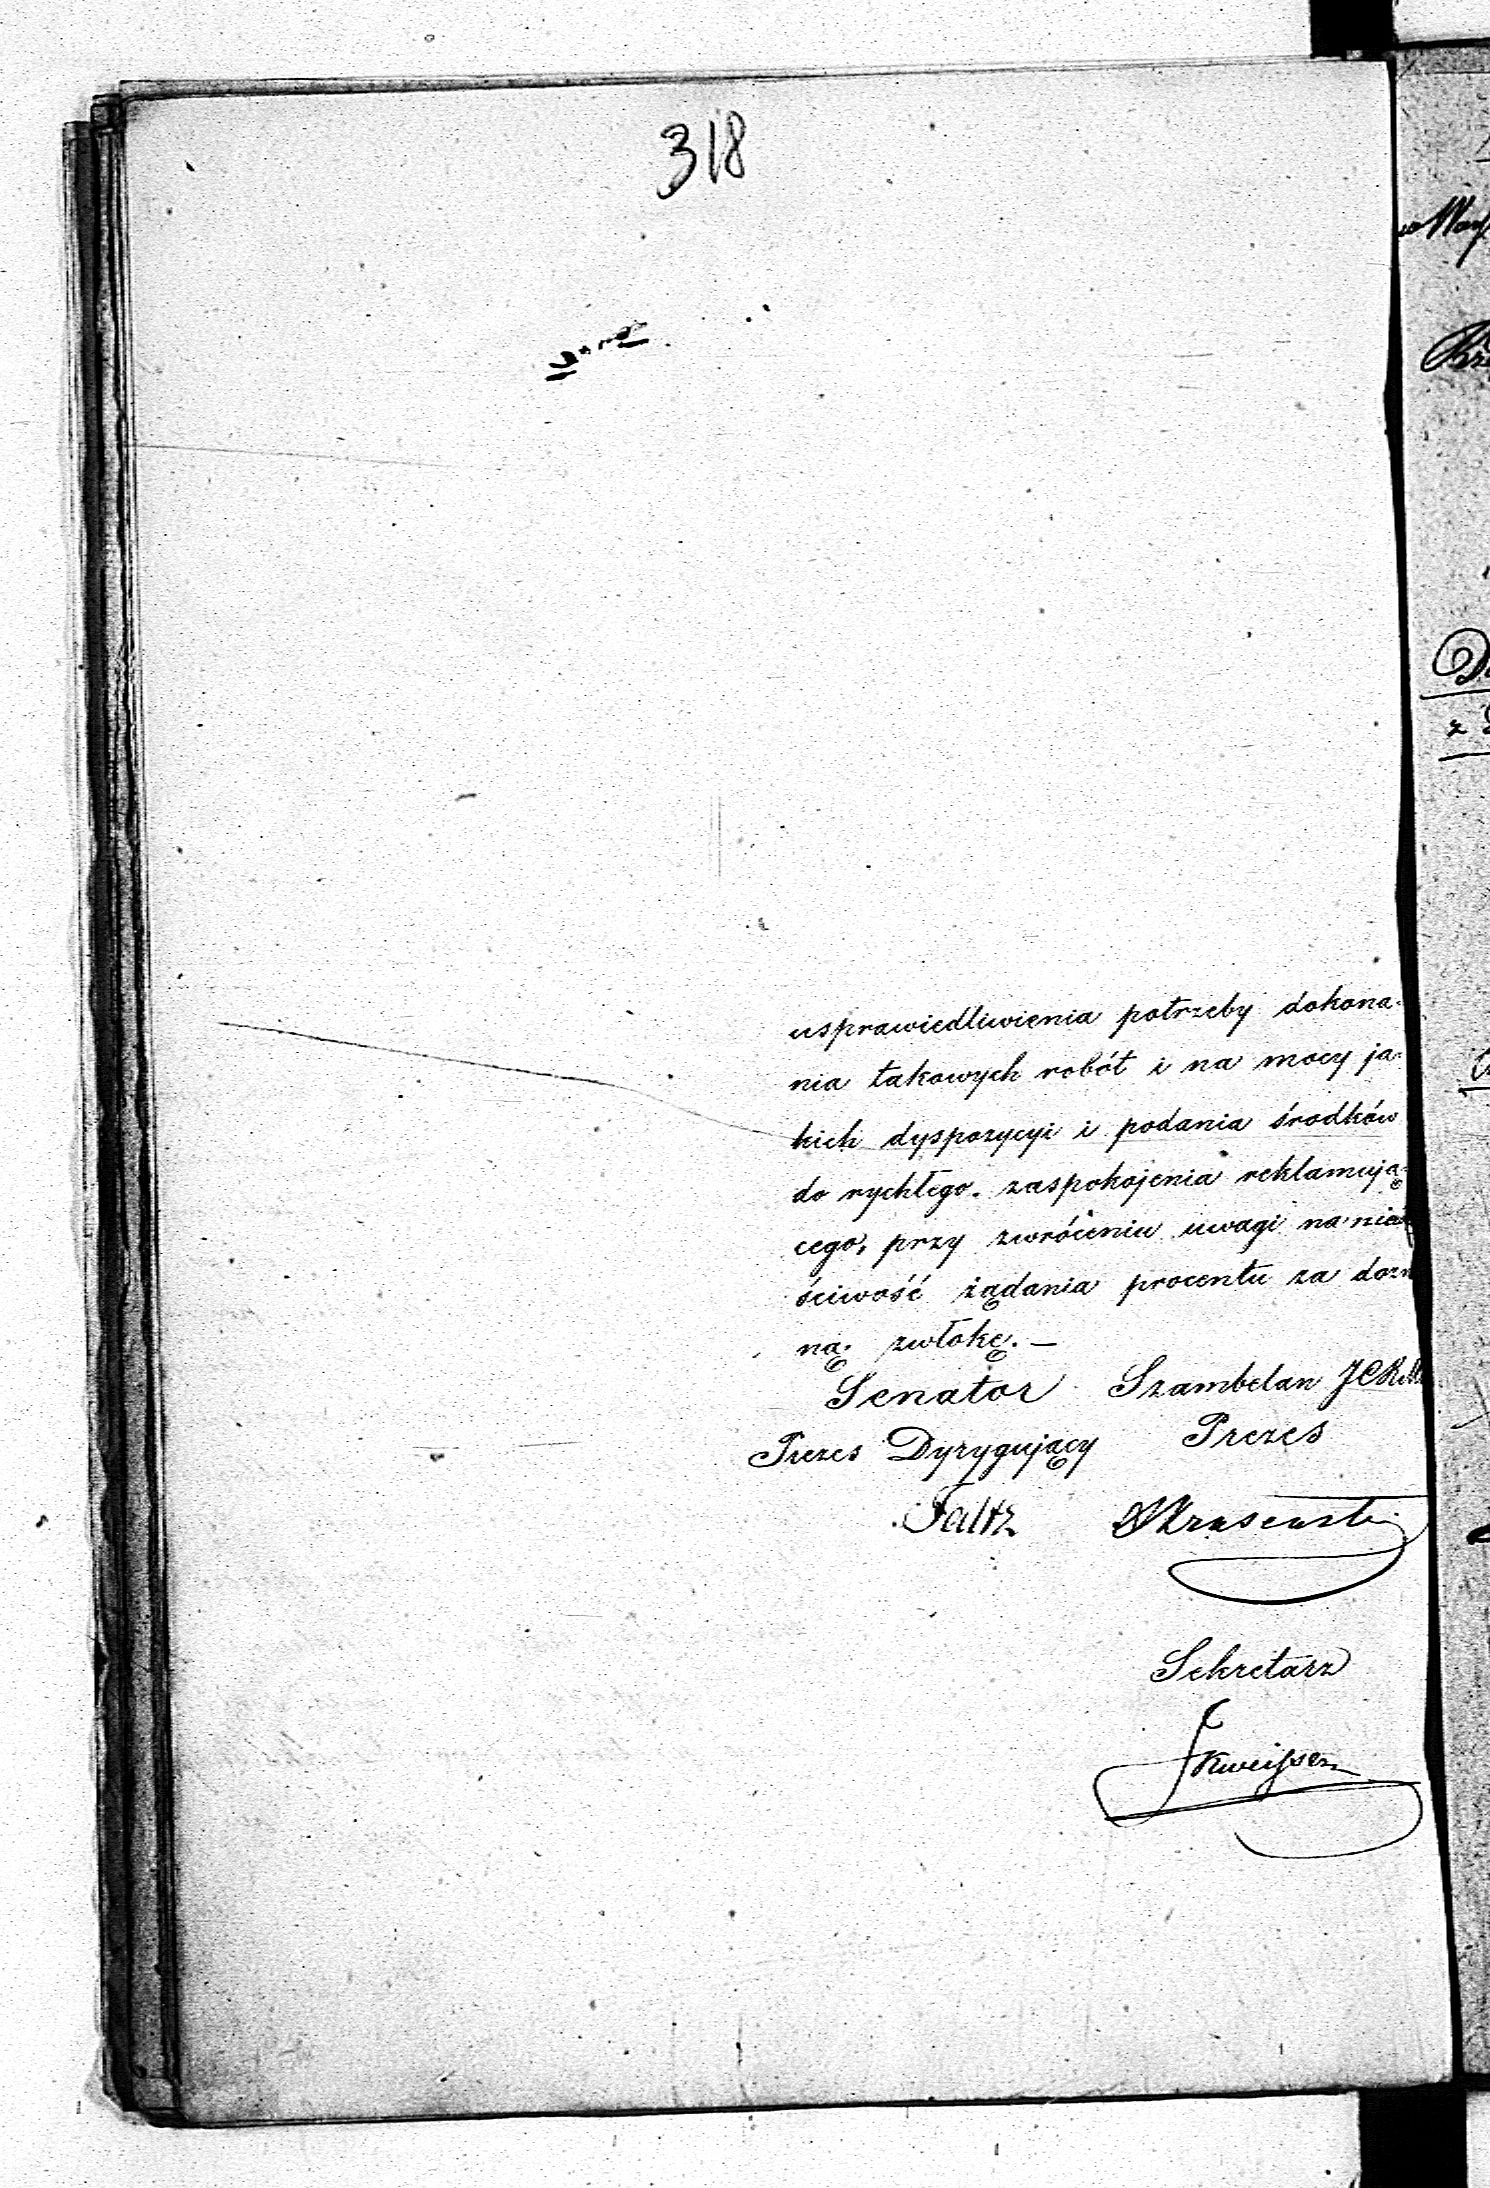 318
usprawiedliwienia potrzeby dokona-
nia takowych robót i na mocy ja-
kich dyspozycyi i podania środków
do rychłego zaspokojenia reklamują-
cego, przy zwróceniu uwagi na
ściwość żądania procentu za
ną zwłokę. —
Senator Szambelan
Prezes Dyrygujący Prezes
Faltz
Sekretarz